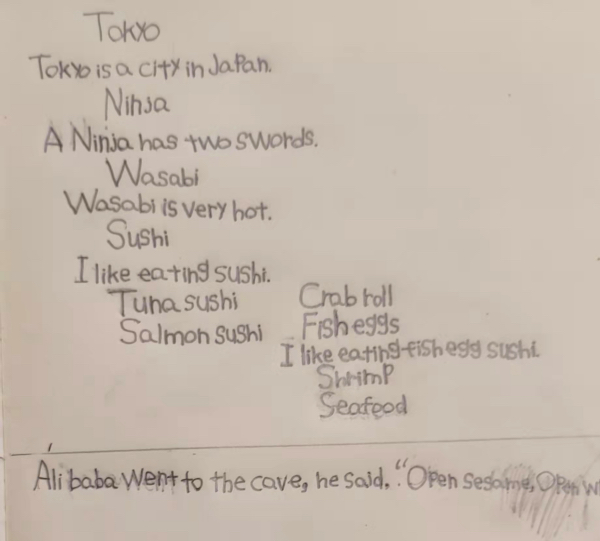 Tokyo
Tokyo is a city in Japan.
Ninja
A Ninja has two swords.
Wasabi
Wasabi is very hot.
Sushi
I like eating sushi.
Tuna sushi
Salmon sushi
Crab roll
Fish eggs
I like eating fish egg sushi.
Shrimp
Seafood
Ali baba went to the cave, he said. "Open Sesame, Open